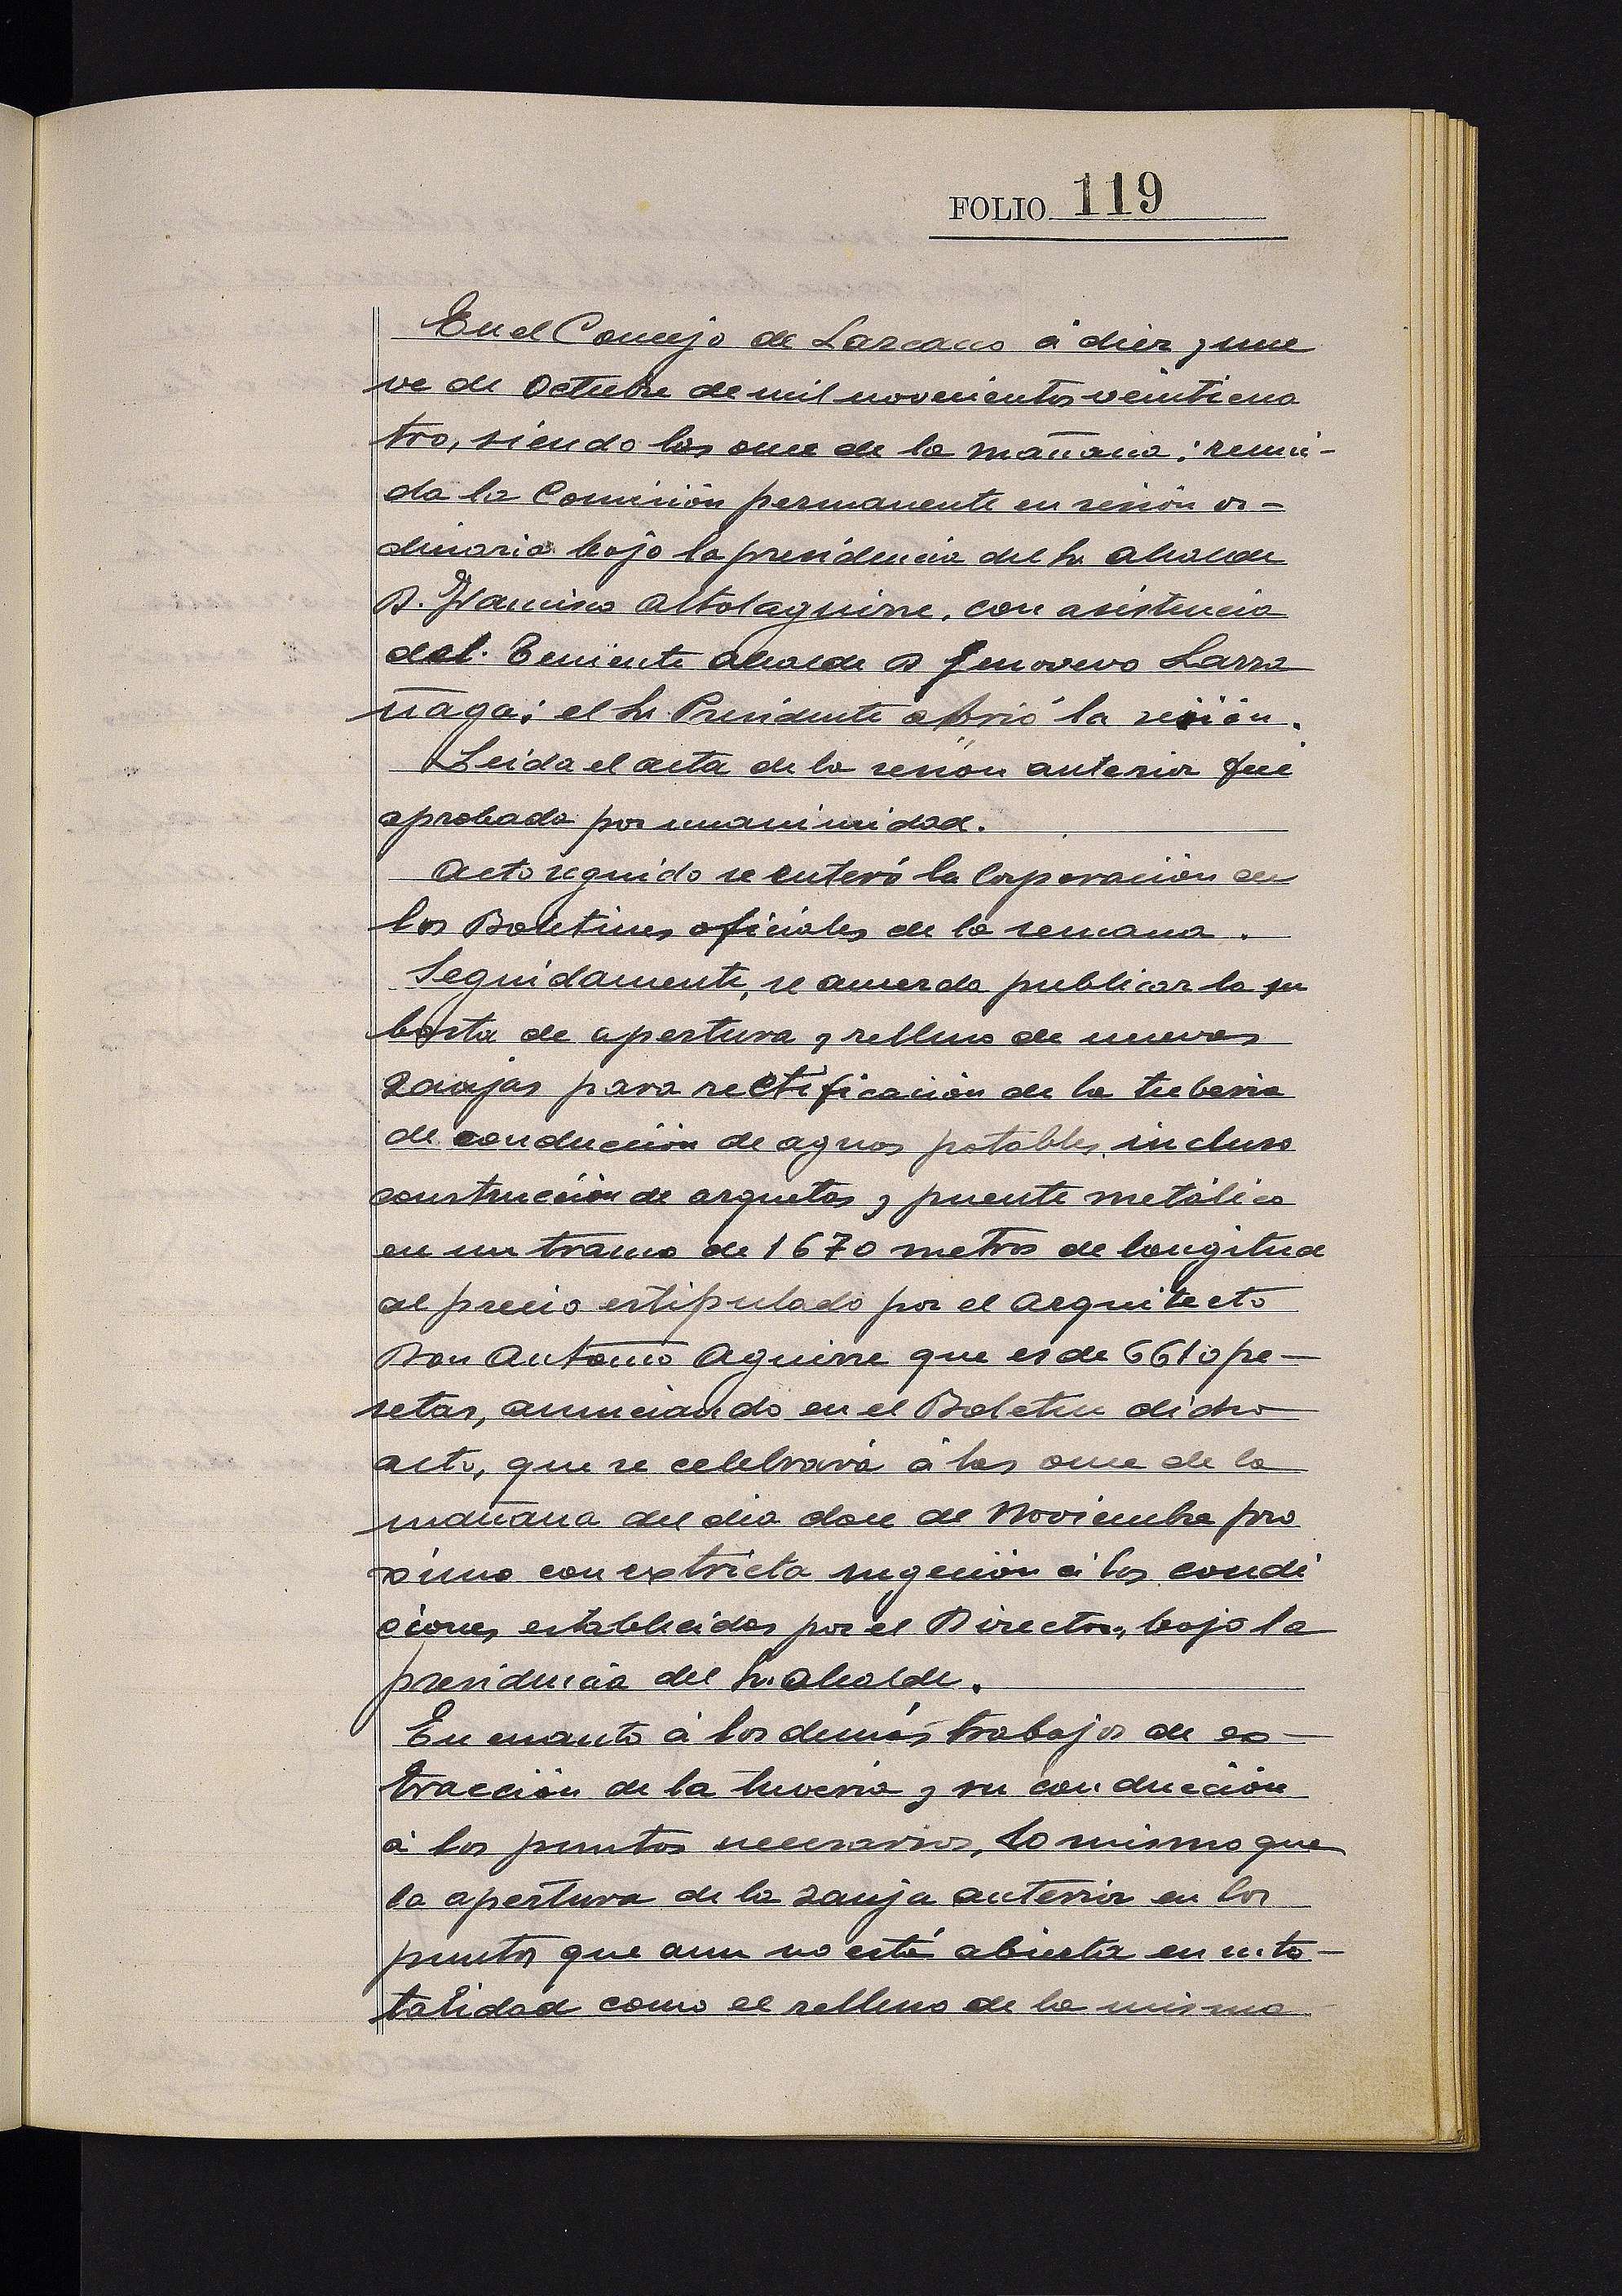 FOLIO 119
En el Concejo de Lazcano á diez y nue
ve de Octubre de mil novecientos veinticua
tro, siendo las once de la mañana: reuni-
da la Comisión permanente en sesión or-
dinaria bajo la presidencia del Sr. Alcalde
D. Francisco Altolaguirre, con asistencia
del Teniente Alcalde D Genovevo Larra
ñaga; el Sr. Presidente abrió la sesión.
Leida el acta de la sesión anterior fué
aprobada por unanimidad.
Acto seguido se enteró la Corporación de
los Boletines oficiales de la semana.
Seguidamente, se acuerda publicar la su
basta de apertura y relleno de nuevas
zanjas para rectificación de la tuberia
de conducción de aguas potables, incluso
construcción de arquetas y puente metálico
en un tramo de 1670 metros de longitud
al precio estipulado por el Arquitecto
Don Antonio Aguirre que es de 6610 pe-
setas, anunciando en el Boletin dicho
acto, que se celebrará á las once de la
mañana del dia doce de Noviembre pro
ximo con extricta sugeción á las condi
ciones establecidas por el Director, bajo la
presidencia del Sr. Alcalde.
En cuanto á los demás trabajos de ex-
tracción de la tuveria y su conducción
á los puntos necesarios, lo mismo que
la apertura de la zanja anterior en los
puntos que aun no está abierta en su to-
talidad como el relleno de la misma